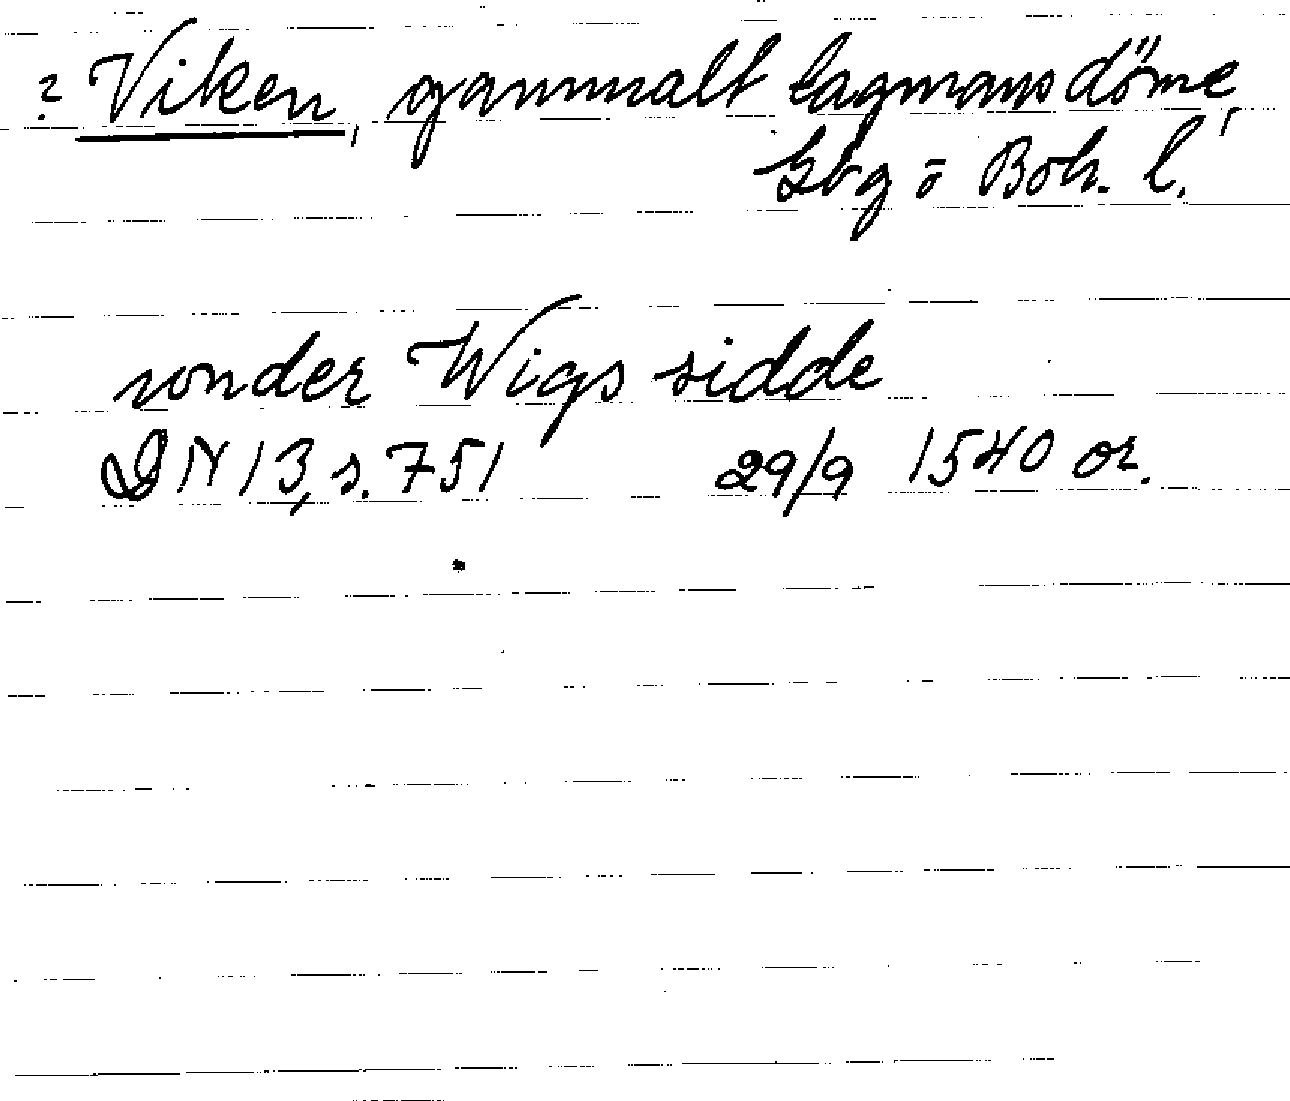 ? Viken, gammalt lagmansdöme,
Gbg o Boh. l.
vonder Wigs sidde
DN 13, s. 751 29/9 1540 or.